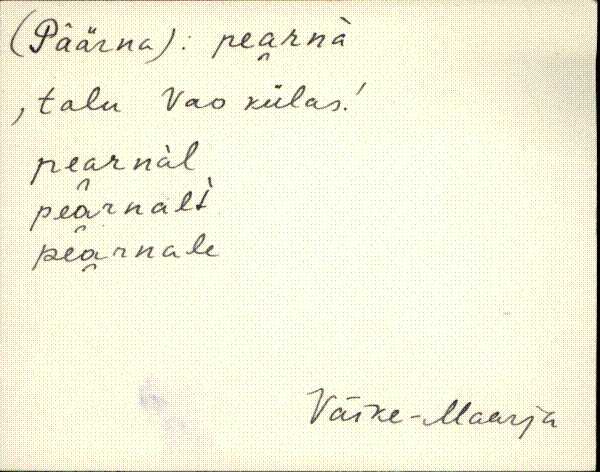 (Päärna): pea̯rnà
, talu Vao külas.'
pea̯rnàl
pea̯rnalt̀
pea̯rnale
Väike-Maarja